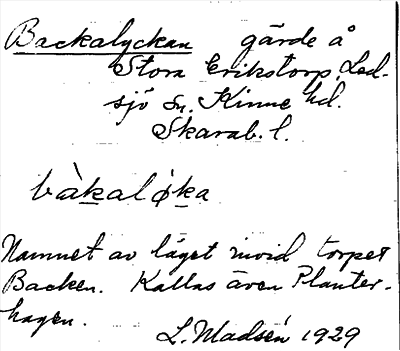 Backalyckan gärde å
Stora Erikstorp, Led-
sjö sn. Kinne hd.
Skarab. l.
bàkaløka
Namnet av läget invid torpet
Backen. Kallas även Planter-
hagen.
L. Madsén 1929